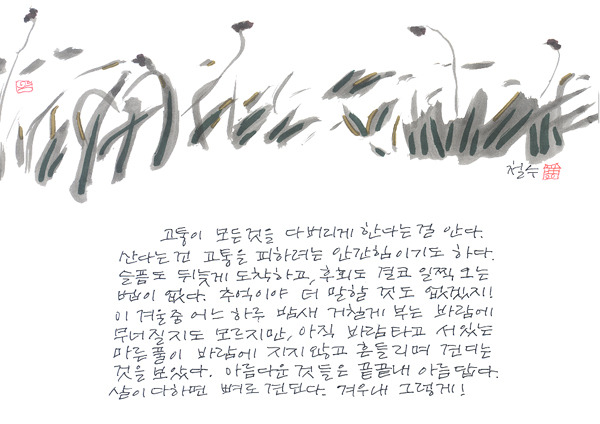 철수
고통이 모든것을 다버리게 한다는걸 안다.
산다는건 고통을 피하려는 안간힘이기도 하다.
슬픔도 뒤늦게 도착하고, 후회도 결코 일찍 오는
법이 없다. 추억이야 더 말할 것도 없겠지!
이 겨울중 어느 하루 밤새 거칠게 부는 바람에
무너질지도 모르지만, 아직 바람타고 서있는
마른풀이 바람에 지지않고 흔들리며 견디는
것을 보았다. 아름다운 것들은 끝끝내 아름답다.
삶이 다하면 뼈로 견딘다. 겨우내 그렇게!